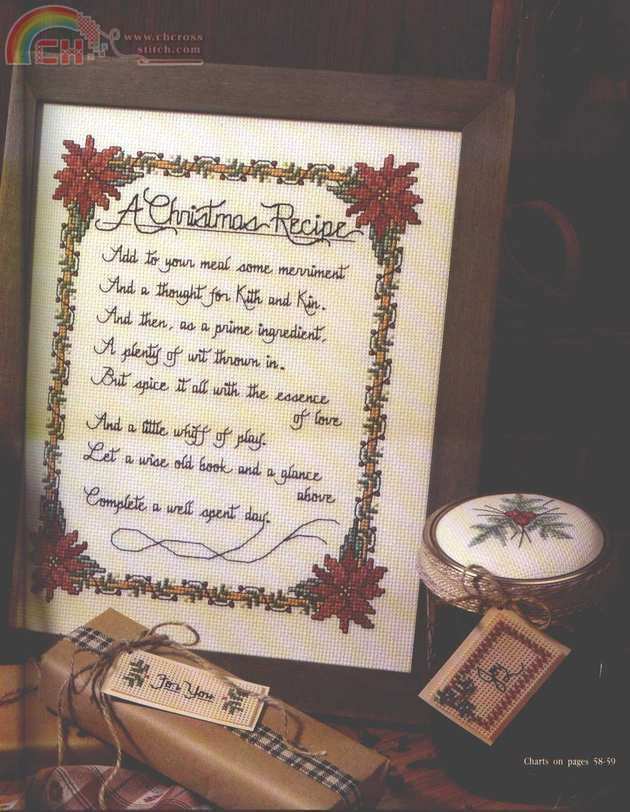 CH
www.chcross
stitch.com
A Christmas Recipe
Add to your meal some merriment
And a thought for Kith and Kin.
And then, as a prime ingredient,
A plenty of wit thrown in.
But spice it all with the essence
of love
And a little whiff of play.
Let a wise old book and a glance
above
Complete a well spent day.
For You
Charts on pages 58-59